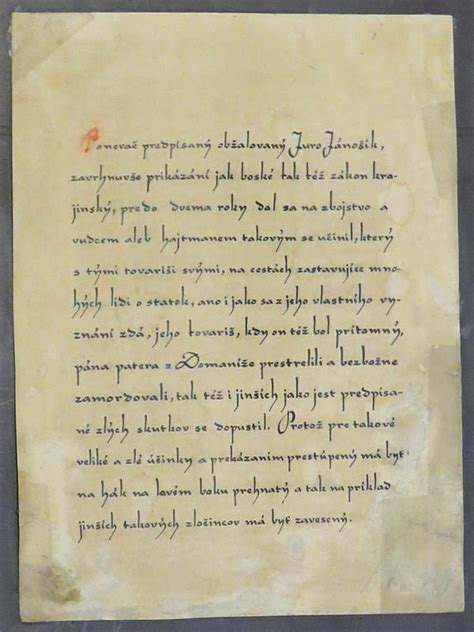 Ponevač predpísaný obžalovaný Juro Jánošík,
zavrhnuvše prikázání jak boské tak též zákon kra-
jinský, predo dvema roky dal sa na zbojstvo a
vudcem aleb hajtmanem takovým se učinil, který
s tými tovariši svými, na cestách zastavujíce mno-
hých lidi o statok, ano i jako sa z jeho vlastního vy-
znání zdá, jeho tovariš, kdy on též bol prítomný,
pána patera z Domaniže prestrelili a bezbožne
zamordovali, tak též i jinších jako jest predpisa-
né zlých skutkov se dopustil. Protož pre takové
veliké a zlé účinky a prekázaním prestúpený má byt
na hák na levém boku prehnatý a tak na príklad
jinších takových zločincov má byt zavesený.